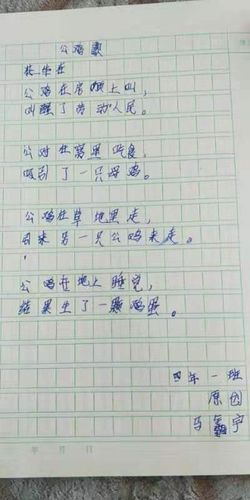 公鸡歌
公鸡在房顶上叫，
叫醒了劳动人民。
公鸡在窝里吃食，
吸引了一只母鸡。
公鸡在草地里走，
引来另一只公鸡来走。
公鸡在地上睡觉，
结果生了一颗鸡蛋。
四年一班
原因
马 宇
年 月 日